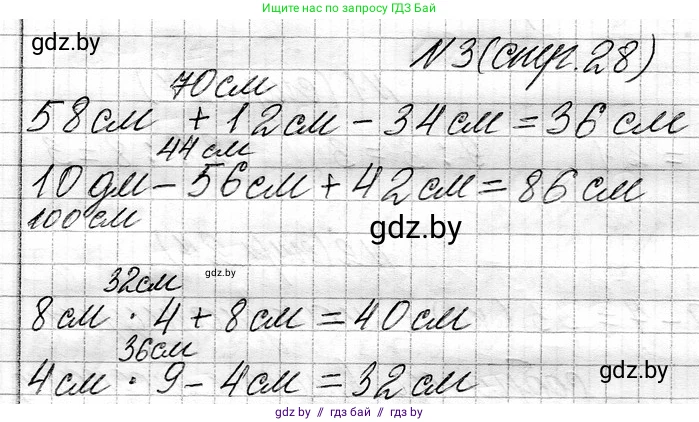 Ищите нас по запросу ГДЗ Бай
gdz.by
N3(стр.28)
70см
58см + 12см - 34см = 36см
44см
10дм - 56см + 42см = 86см
100см
gdz.by
gdz.by
32см
8см · 4 + 8см = 40см
36см
4см · 9 - 4см = 32см
gdz.by
gdz.by // гдз бай // гдз by